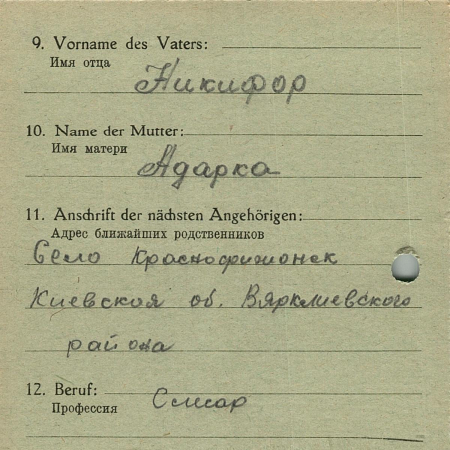 9. Vorname des Vaters:
Имя отца
Никифор
10. Name der Mutter:
Имя матери
Адарка
11. Anschrift der nächsten Angehörigen:
Адрес ближайших родственников
Село
Киевская об.
района
12. Beruf:
Профессия
Слисар